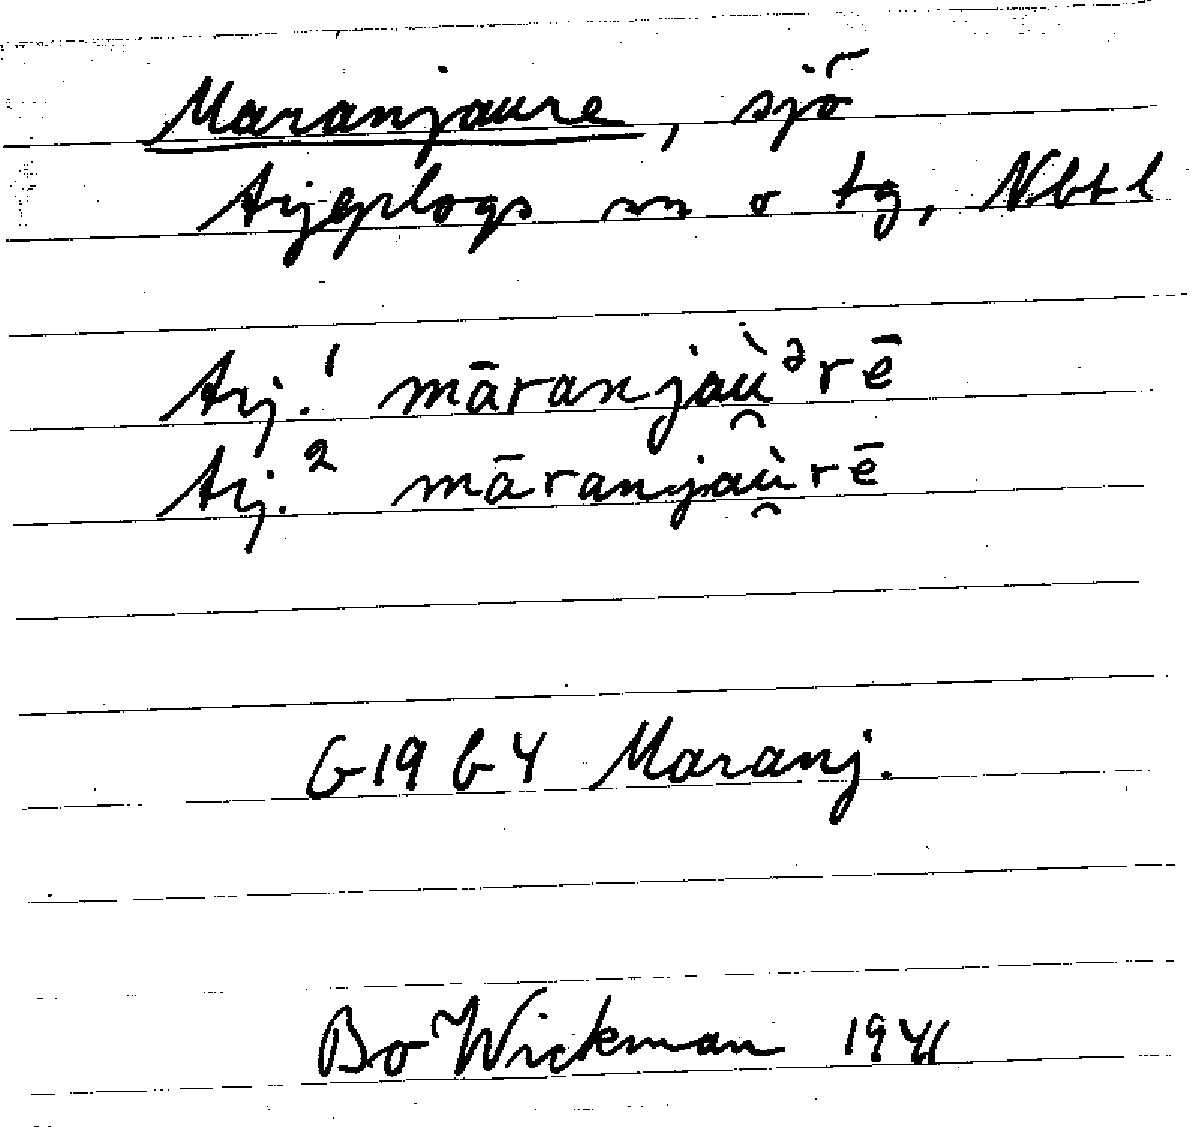 Maranjaure, sjö
Arjeplogs sn o tg, Nbtl
Arj.¹ māranjaù̯ᵊrē
Arj.² māranjaù̯rē
G 19 b 4 Maranj.
Bo Wickman 1941